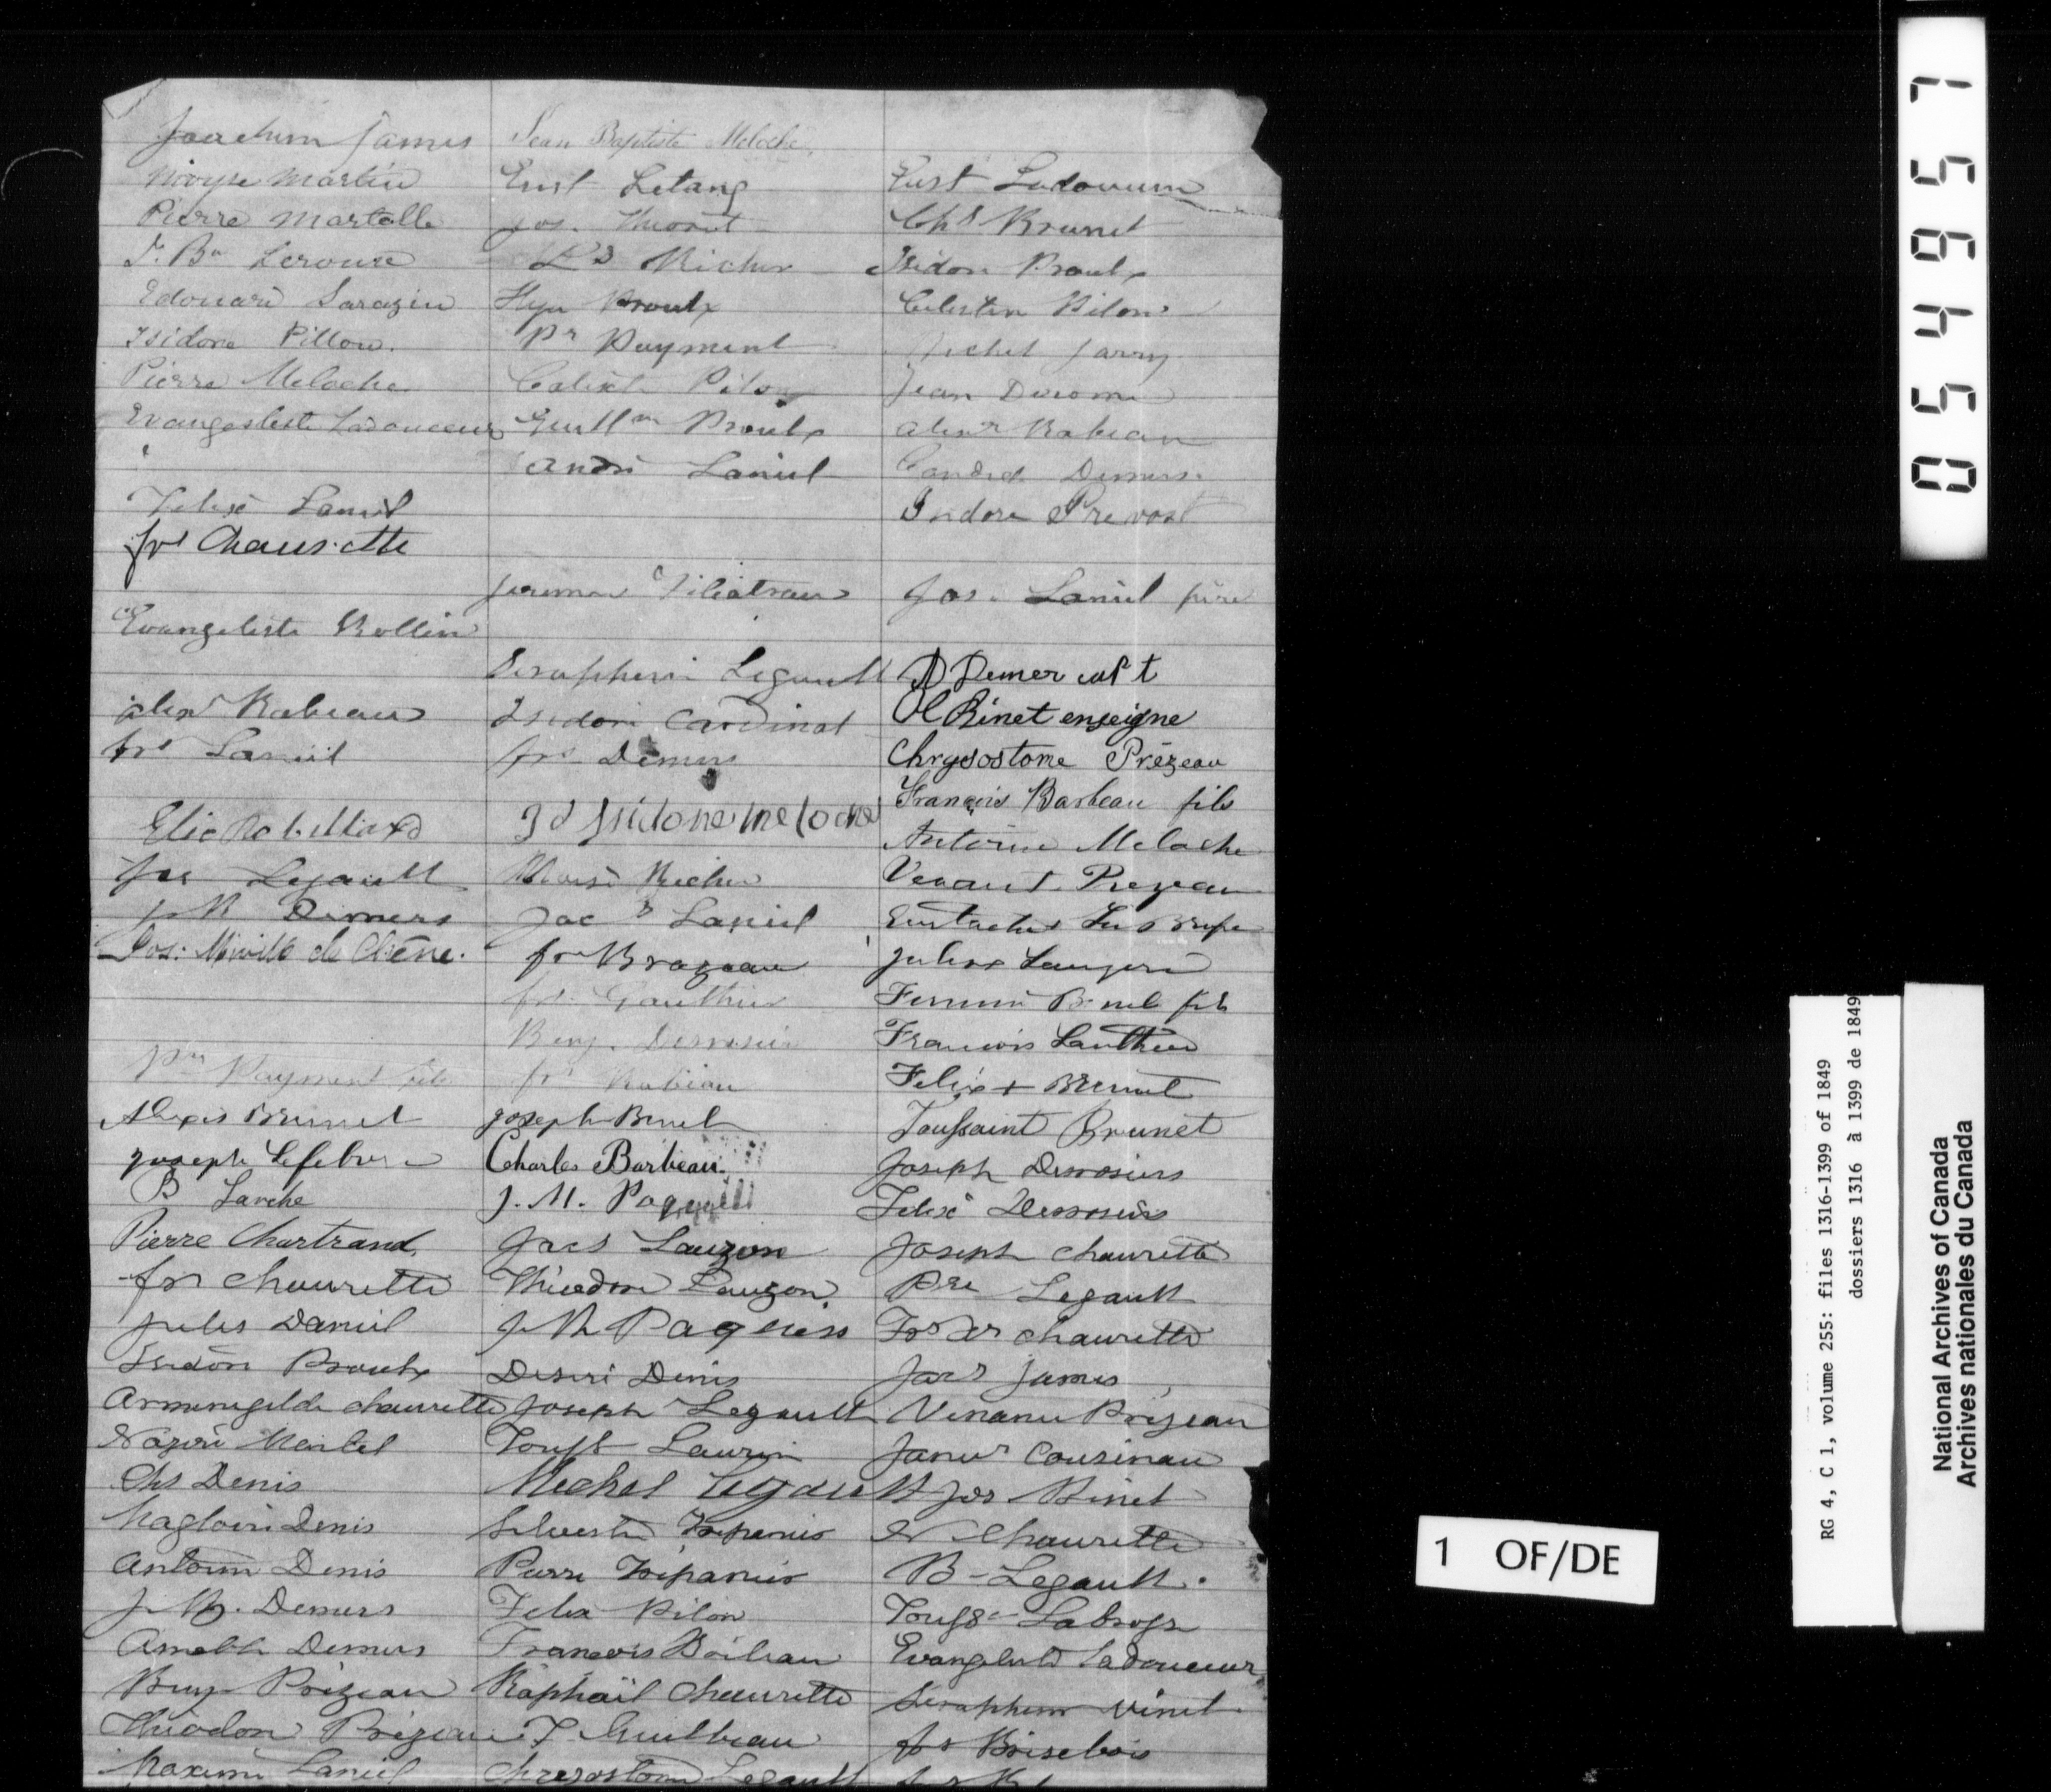 Joachim James
Moyse Martin
Pierre Martelle
J. Bte Lerouse
Edouard Sarazin
Isidore Pillow.
Pierre Meloche
Evangeliste Ladouceur
Felix Laniel
frs Chaurette
Evangeliste Rollin
alexr Rabeau
frs Laniel
Elie Robillard
Jos Legault
J M Demers
Jos. Miville de Chêne.
Pre Payment fils
Alexis Brunet
Joseph Lefebvre
B Larche
Pierre Chartrand
frs Chaurette
Jules Daniel
Isidore Proulx
Armenegilde Chaurette
Nazire Martel
Chs Denis
Magloire Denis
Antoine Denis
J. B. Demers
Amable Demers
Benj Prézeau
Théodore Prézeau
Maxime Laniel
Jean Baptiste Meloche
Eust Letang
Jos. Theoret
Ls Richer
Hya Proulx
Pr Payment
Calixte Pilon
Guillme Proulx
André Laniel
Filiatreau
Seraphin Legault
Isidore Cardinal
frs Demers
Isidore meloche
Moise Richer
Jacs Laniel
frs Brazeau
frs. Gauthier
Benj. Desrosiers
frs Rabeau
Joseph Binet
Charles Barbeau
J. M. Paquette
Jacs Lauzon
Théodore Lauzon
J M Paquess
Desiré Denis
Joseph Legault
Toust Laurin
Michel Legault
Silvestre Trépanier
Pierre Trépanier
Felix Pilon
François Boileau
Raphaël Chaurette
J. Guilbeau
Chrysostome Legault
Eust Ladouceur
Chs Brunet
Isidore Proulx
Celestin Pilon
Michel Jarry
Jean Durome
alexr Rabeau
Candide Demers
Isidore Prevost
Jos. Laniel père
D Demer capt
Ol Binet enseigne
Chrysostome Prézeau
François Barbeau fils
Antoine Meloche
Venant Prezeau
Eustache
Jules
Binet fils
François Gauthier
Felix + Brunet
Toussaint Brunet
Joseph Desrosiers
Felix Desrosiers
Joseph Chaurette
Pre Legault
Frs Xr Chaurette
Jacs James
Venance Prézeau
Janvr Cousineau
Jos Binet
N Chaurette
B - Legault.
Touss Labrosse
Evangeliste Ladouceur
Seraphin Vinet
frs Brisebois
054957
1 OF/DE
RG 4, C 1, volume 255: files 1316-1399 of 1849
dossiers 1316 à 1399 de 1849
National Archives of Canada
Archives nationales du Canada